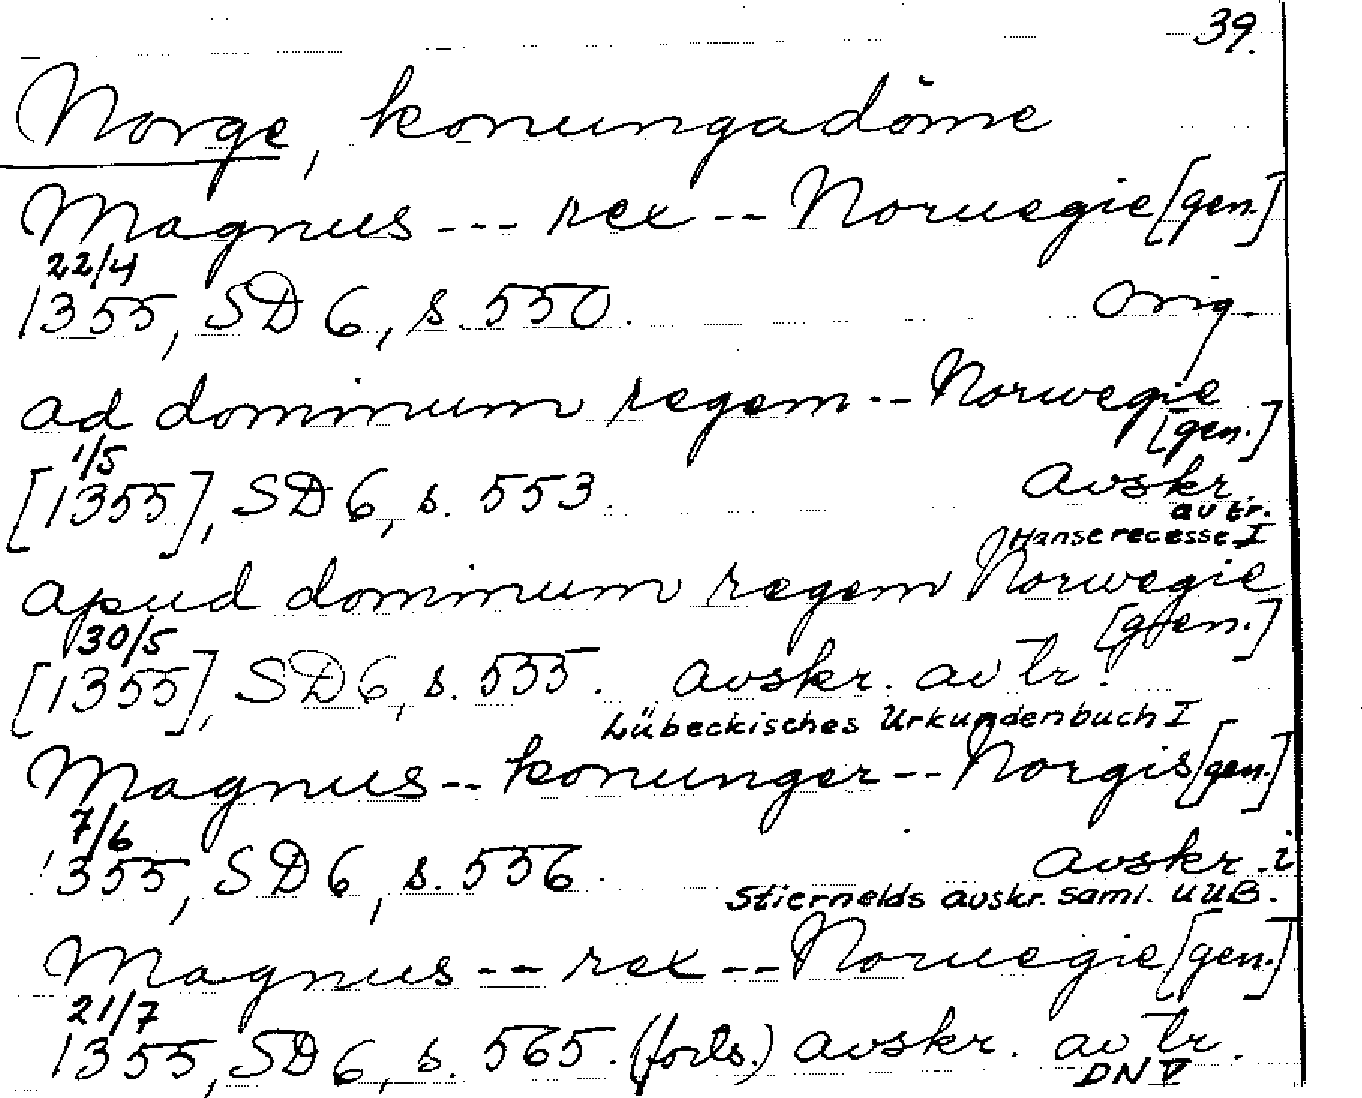 39.
Norge, konungadöme
Magnus --- rex -- Noruegie [gen.]
22/4
1355, SD 6, s. 550. Orig.
ad dominum regem -- Norwegie
[gen.]
1/5
[1355], SD 6, s. 553. avskr.
av tr.
Hanserecesse I
apud dominum regem Norwegie
[gen.]
30/5
[1355], SD 6, s. 555. avskr. av tr.
Lübeckisches Urkundenbuch I
Magnus -- konunger -- Norgis [gen.]
7/6
1355, SD 6, s. 556. avskr. i
Stiernelds avskr. saml. UUB.
Magnus -- rex -- Noruegie [gen.]
21/7
1355, SD 6, s. 565. (forts.) avskr. av tr.
DN V